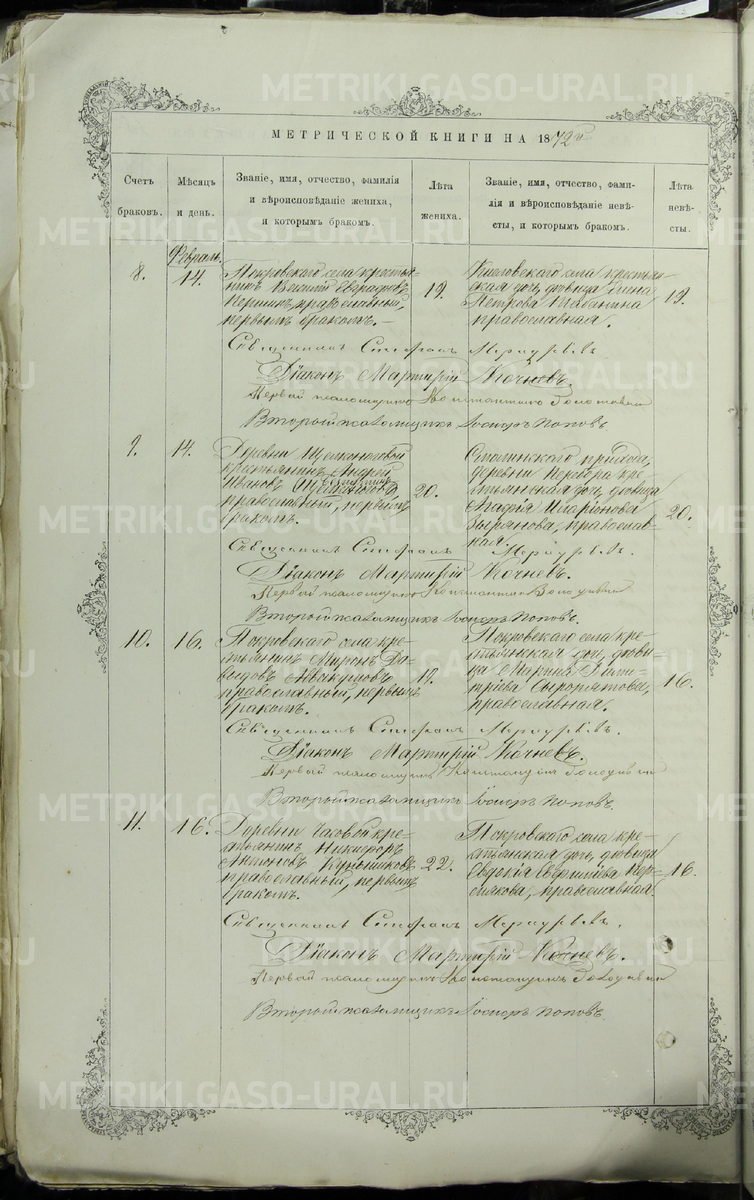 МЕТРИЧЕСКОЙ КНИГИ НА 1872й
Счетъ браковъ.
Мѣсяцъ и день.
Званіе, имя, отчество, фамилія
и вѣроисповѣданіе жениха,
и которымъ бракомъ.
Лѣта жениха.
Званіе, имя, отчество, фами-
лія и вѣроисповѣданіе невѣ-
сты, и которымъ бракомъ.
Лѣта невѣ-
сты.
Февраль
8. 14.
Покровскаго села крестья-
нинъ Василій
православный,
первымъ бракомъ.
19.
села крестьян-
ская дочь, дѣвица
Петрова
православная.
19.
Священникъ Стефанъ Меркурьевъ
Діаконъ Мартирій Кочневъ.
Первый псаломщикъ Константинъ
Второй псаломщикъ Іосифъ Поповъ
9. 14.
Деревни
крестьянинъ Андрей
Ивановъ
православный, первымъ
бракомъ.
20.
Смолинскаго прихода,
деревни Перебора кре-
стьянская дочь, дѣвица
Агафія Иларіонова
Зырянова, православ-
ная.
20.
Священникъ Стефанъ Меркурьевъ.
Діаконъ Мартирій Кочневъ.
Первый псаломщикъ Константинъ
Второй псаломщикъ Іосифъ Поповъ.
10. 16.
Покровскаго села кре-
стьянинъ Миронъ Да-
выдовъ Аввакумовъ
православный, первымъ
бракомъ.
19.
Покровскаго села кре-
стьянская дочь, дѣви-
ца Марина Дими-
тріева Сыропятова,
православная.
16.
Священникъ Стефанъ Меркурьевъ.
Діаконъ Мартирій Кочневъ.
Первый псаломщикъ Константинъ
Второй псаломщикъ Іосифъ Поповъ.
11. 16.
Деревни Часовой кре-
стьянинъ Никифоръ
Антоновъ
православный, первымъ
бракомъ.
22.
Покровскаго села кре-
стьянская дочь, дѣвица
Евдокія
православная.
16.
Священникъ Стефанъ Меркурьевъ.
Діаконъ Мартирій Кочневъ.
Первый псаломщикъ Константинъ
Второй псаломщикъ Іосифъ Поповъ.
METRIKI.GASO-URAL.RU